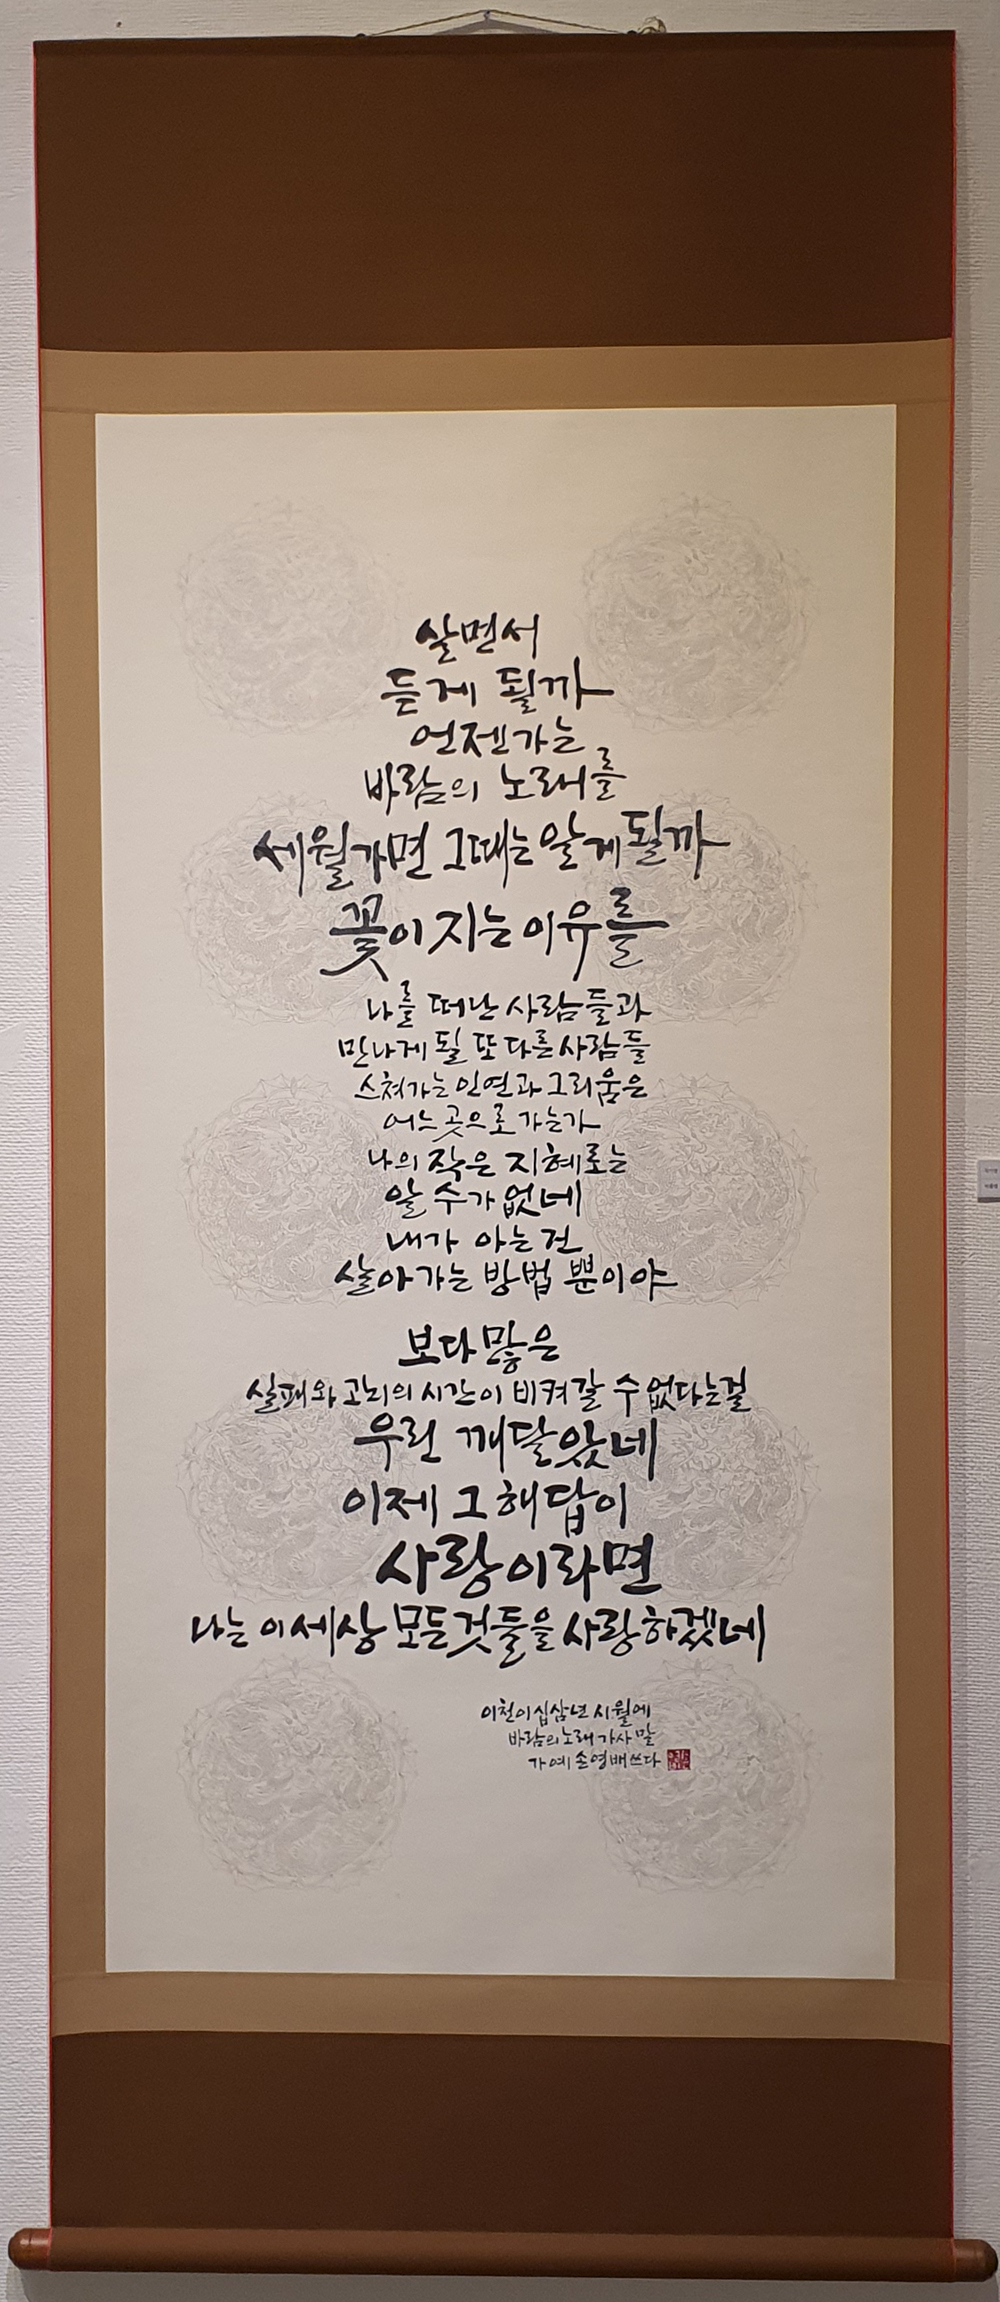 살면서
듣게 될까
언젠가는
바람의 노래를
세월가면 그때는 알게될까
꽃이 지는 이유를
나를 떠난 사람들과
만나게 될 또 다른 사람들
스쳐가는 인연과 그리움은
어느 곳으로 가는가
나의 작은 지혜로는
알 수가 없네
내가 아는 건
살아가는 방법 뿐이야
보다 많은
실패와 고뇌의 시간이 비켜갈 수 없다는걸
우린 깨달았네
이제 그 해답이
사랑이라면
나는 이 세상 모든것들을 사랑하겠네
이천이십삼년 시월에
바람의 노래 가사 말
가예 손영배 쓰다